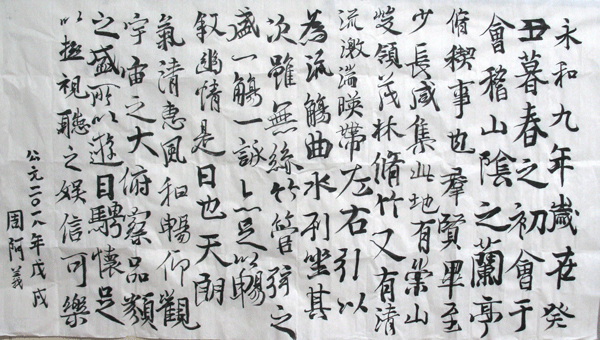 永和九年歲在癸
丑暮春之初會于
會稽山陰之蘭亭
脩稧事也羣賢畢至
少長咸集此地有崇山
峻領茂林脩竹又有清
流激湍暎帶左右引以
為流觴曲水列坐其
次雖無絲竹管弦之
盛一觴一詠亦足以暢
敘幽情是日也天朗
氣清惠風和暢仰觀
宇宙之大俯察品類
之盛所以遊目騁懷足
以極視聽之娛信可樂
公元二〇一八年戊戌
周阿義